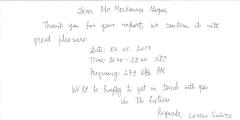 Dear Mr Meckawiz
Thank you for your report, we confirm it with
great pleasure:
Date: 23.05.2017
Time: 2100 - 2200 UTC
Frequency: 279 kHz AM
We'll be happy to get in touch with you
in the future.
Regards,